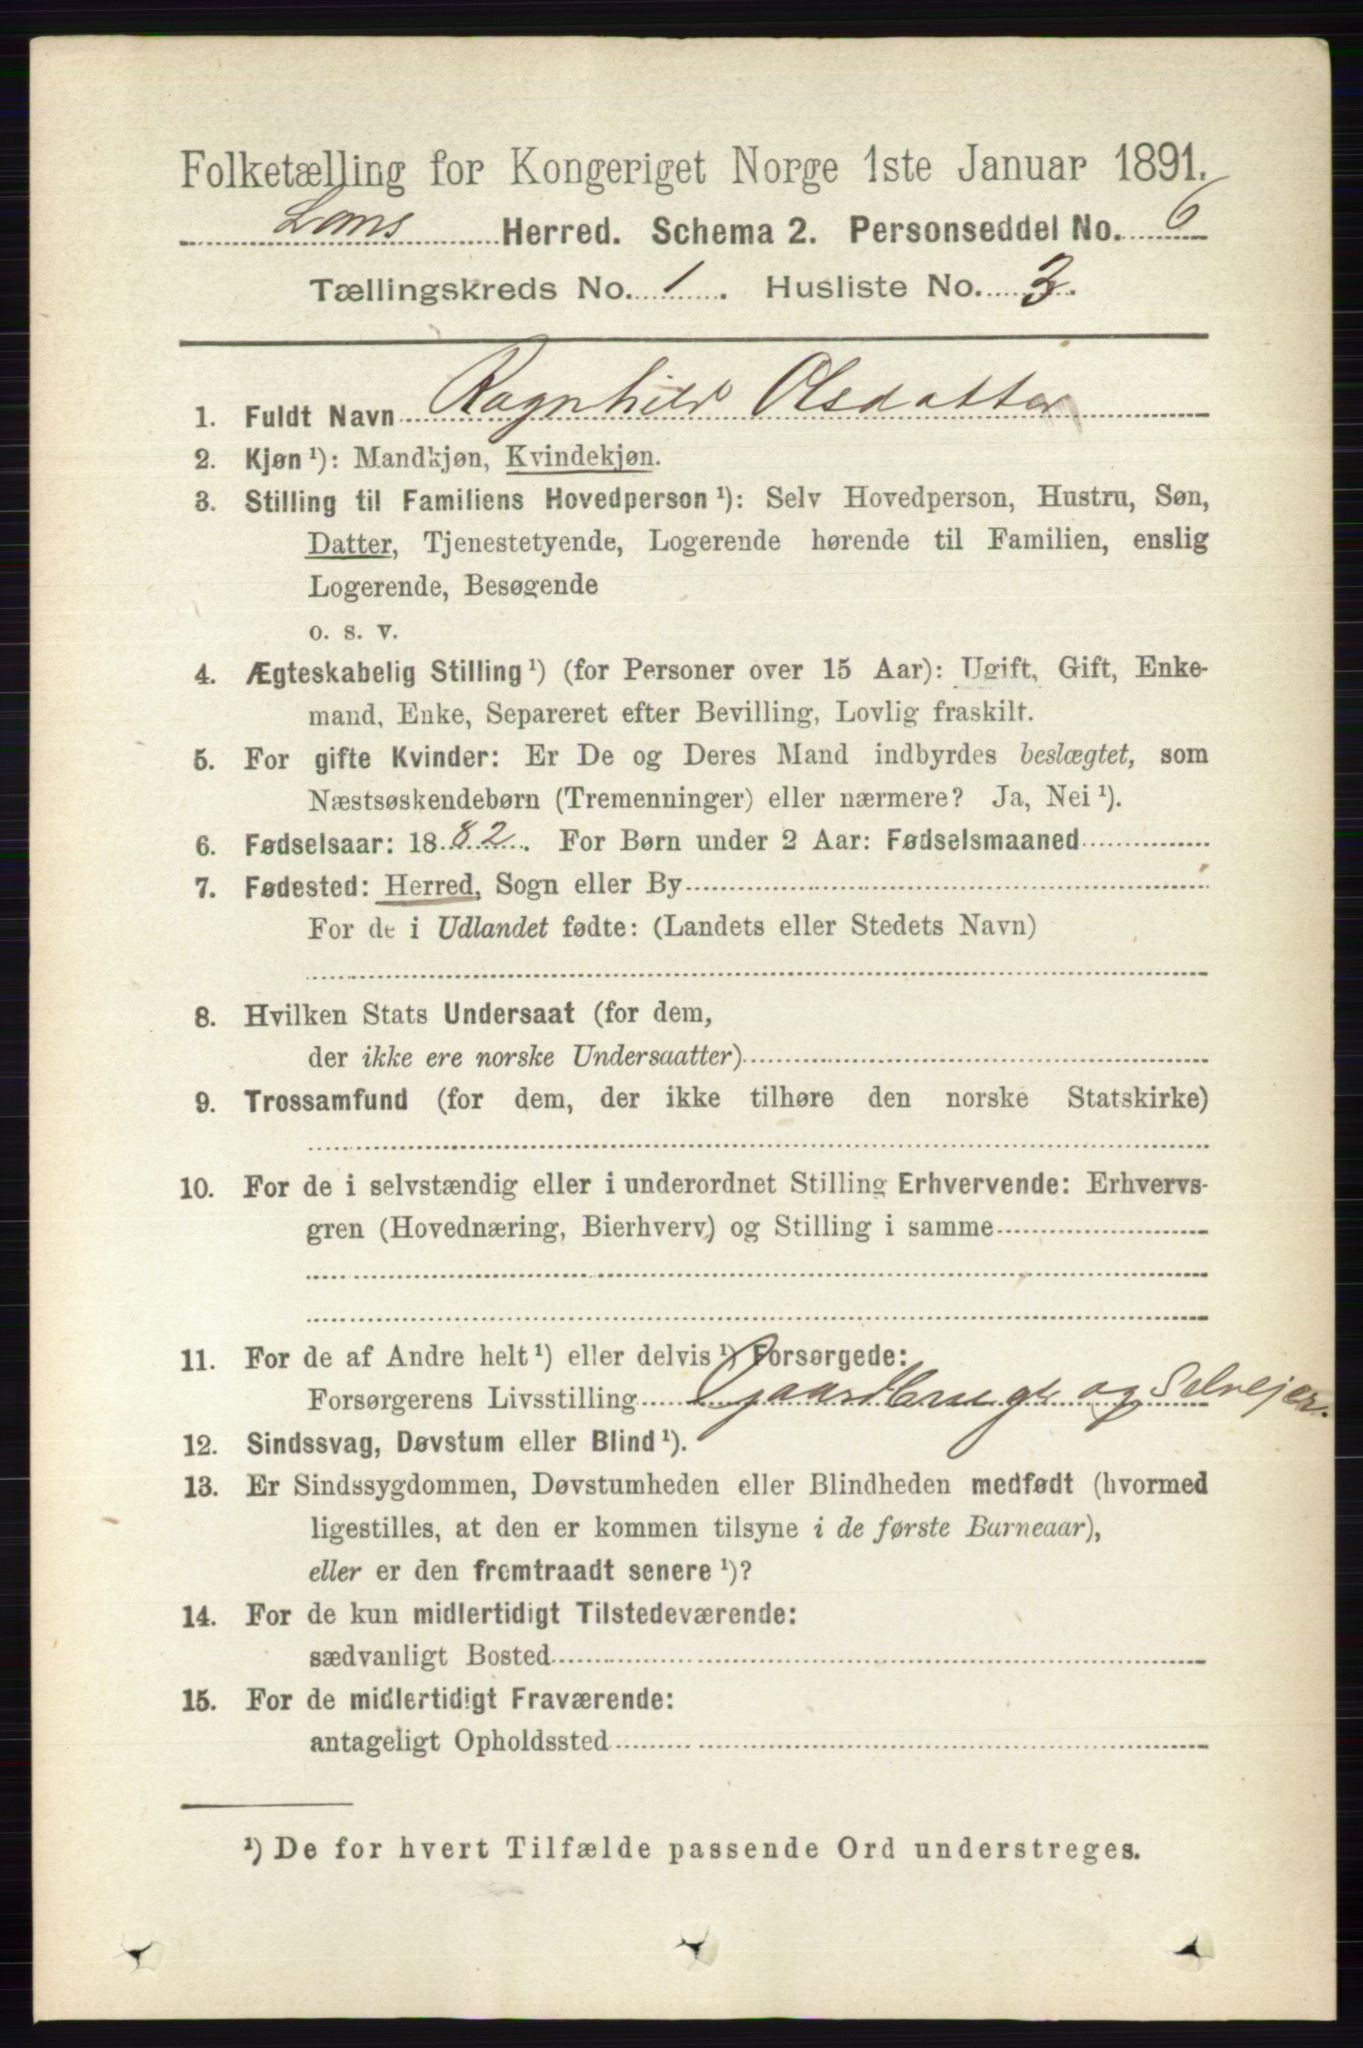 Folketælling for Kongeriget Norge 1ste Januar 1891.
Loms Herred. Schema 2. Personseddel No. 6
Tællingskreds No. 1. Husliste No. 3.
1. Fuldt Navn Ragnhild Olsdatter
2. Kjøn ¹): Mandkjøn, Kvindekjøn.
3. Stilling til Familiens Hovedperson ¹): Selv Hovedperson, Hustru, Søn,
Datter, Tjenestetyende, Logerende hørende til Familien, enslig
Logerende, Besøgende
o. s. v.
4. Ægteskabelig Stilling ¹) (for Personer over 15 Aar): Ugift, Gift, Enke-
mand, Enke, Separeret efter Bevilling, Lovlig fraskilt.
5. For gifte Kvinder: Er De og Deres Mand indbyrdes beslægtet, som
Næstsøskendebørn (Tremenninger) eller nærmere? Ja, Nei ¹).
6. Fødselsaar: 1882. For Børn under 2 Aar: Fødselsmaaned
7. Fødested: Herred, Sogn eller By
For de i Udlandet fødte: (Landets eller Stedets Navn)
8. Hvilken Stats Undersaat (for dem,
der ikke ere norske Undersaatter)
9. Trossamfund (for dem, der ikke tilhøre den norske Statskirke)
10. For de i selvstændig eller i underordnet Stilling Erhvervende: Erhvervs-
gren (Hovednæring, Bierhverv) og Stilling i samme
11. For de af Andre helt ¹) eller delvis ¹) Forsørgede:
Forsørgerens Livsstilling Gaardbruger og Selvejer.
12. Sindssvag, Døvstum eller Blind ¹).
13. Er Sindssygdommen, Døvstumheden eller Blindheden medfødt (hvormed
ligestilles, at den er kommen tilsyne i de første Barneaar),
eller er den fremtraadt senere ¹)?
14. For de kun midlertidigt Tilstedeværende:
sædvanligt Bosted
15. For de midlertidigt Fraværende:
antageligt Opholdssted
¹) De for hvert Tilfælde passende Ord understreges.